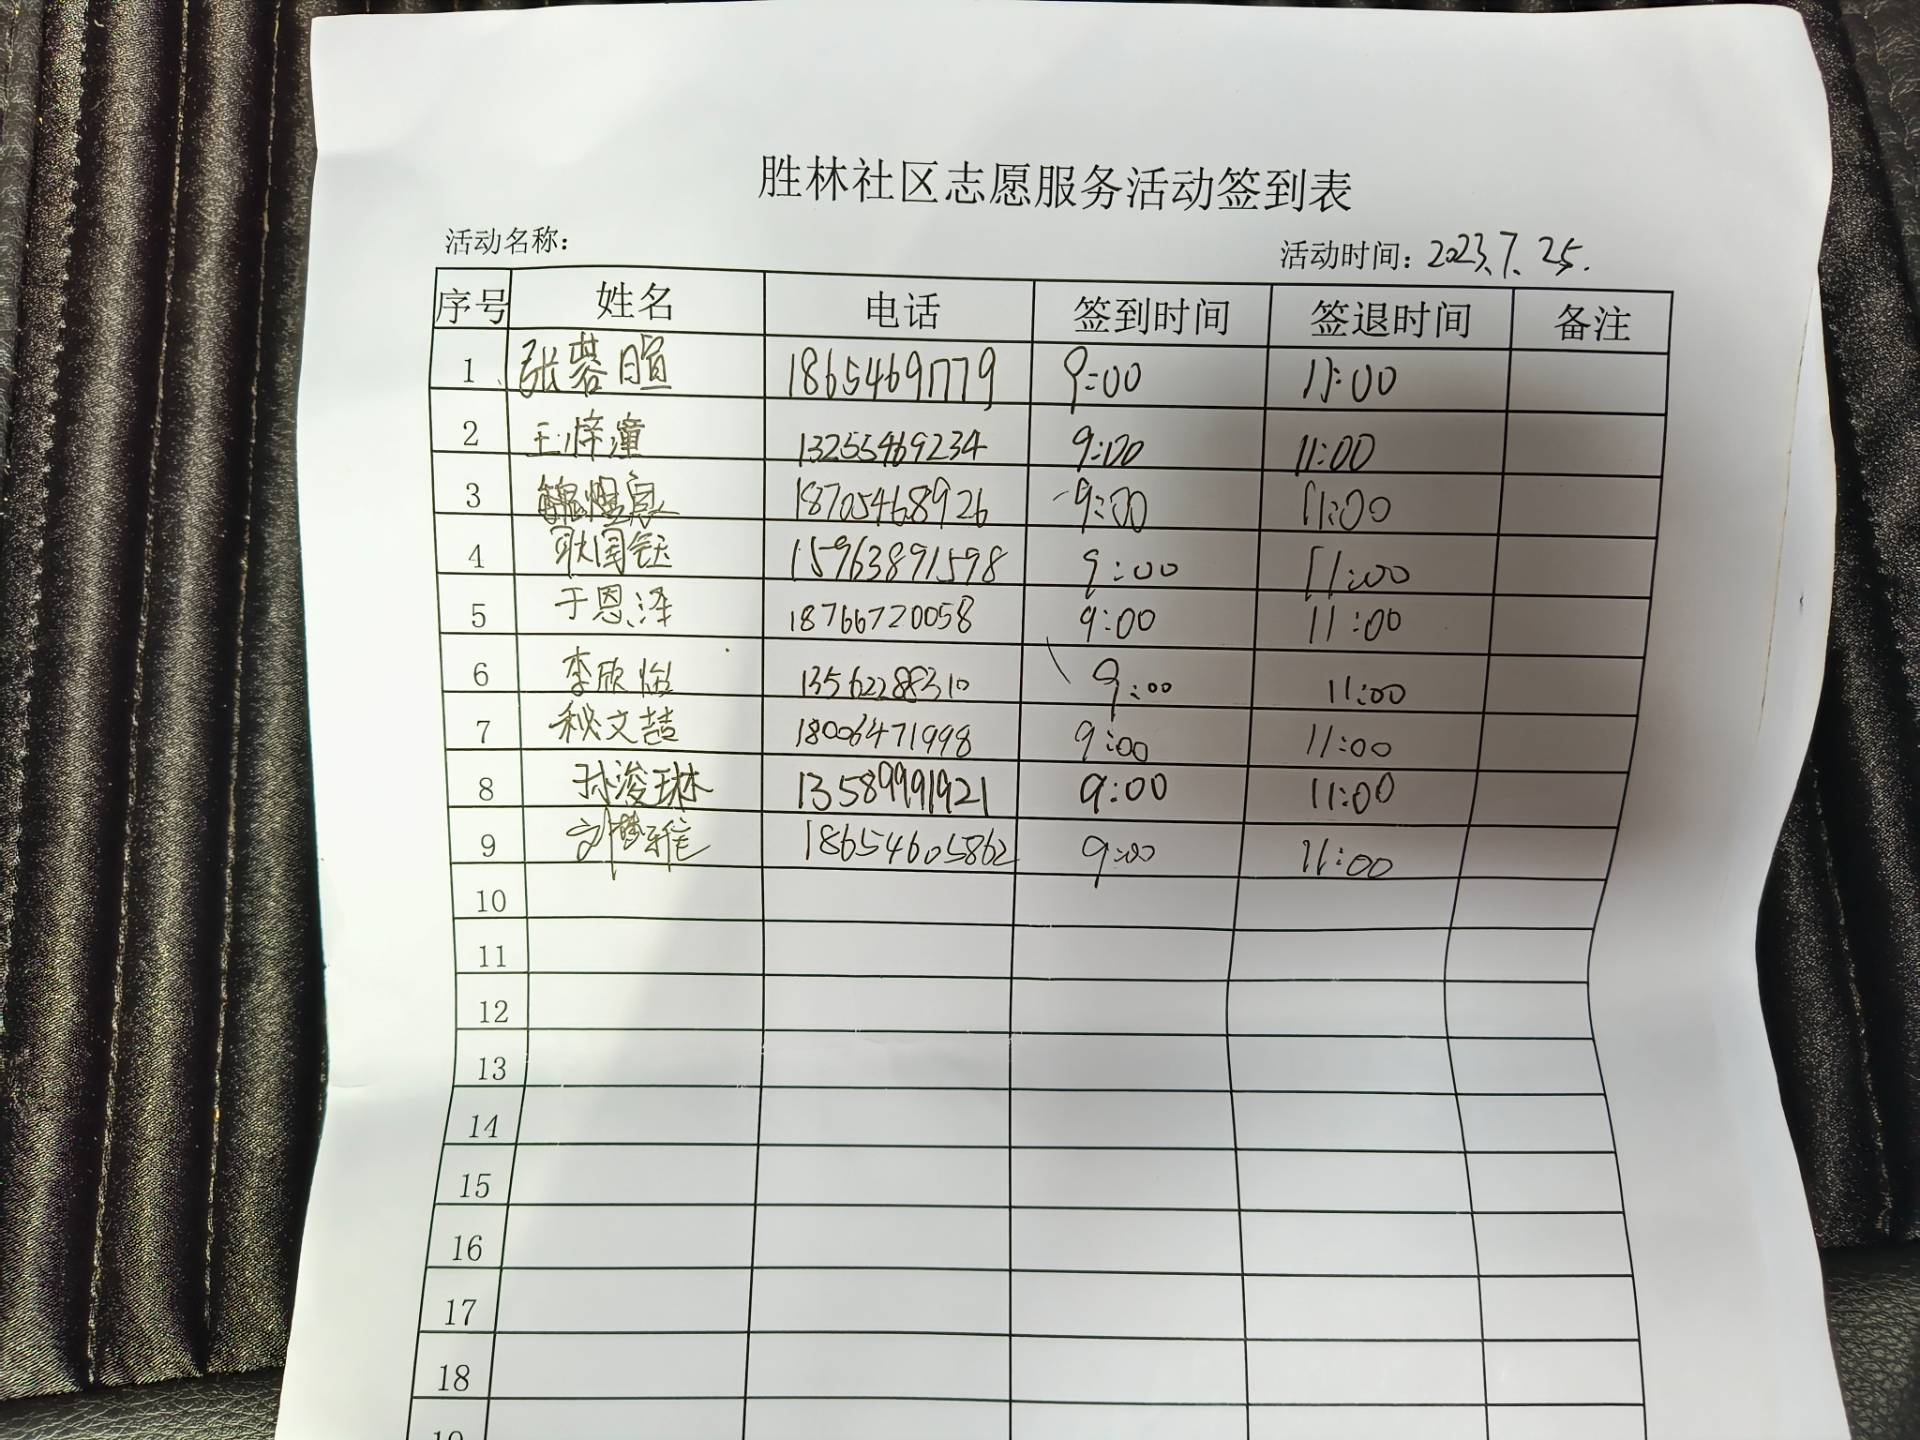 胜林社区志愿服务活动签到表
活动名称： 活动时间：2023.7.25.
序号 姓名 电话 签到时间 签退时间 备注
1 张蓉暄 18654691779 9:00 11:00
2 王梓潼 13255469234 9:00 11:00
3 18705468926 9:00 11:00
4 耿国钰 15963891598 9:00 11:00
5 于恩泽 18766720058 9:00 11:00
6 李欣怡 13562288310 9:00 11:00
7 秘文喆 18006471998 9:00 11:00
8 孙浚琳 13589991921 9:00 11:00
9 刘梦雅 18654605862 9:00 11:00
10
11
12
13
14
15
16
17
18